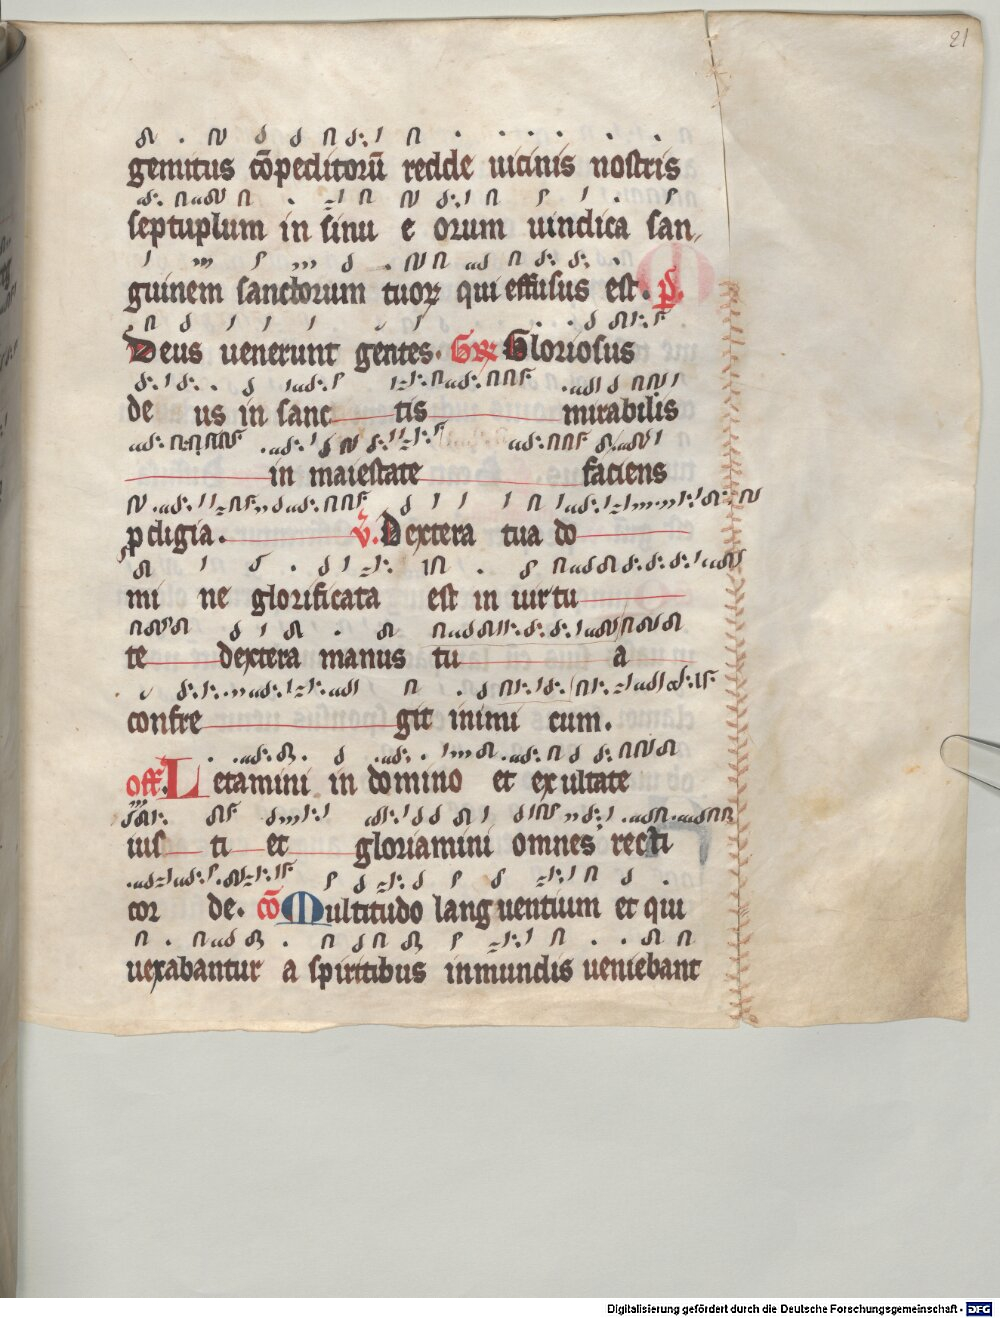 21
gemitus cōpeditorū redde uicinis nostris
septuplum in sinu e orum uindica san
guinem sanctorum tuoꝝ qui effusus est. p̄s.
Deus uenerunt gentes. Gr̄ Gloriosus
de us in sanc tis mirabilis
in maiestate faciens
ꝓdigia. v̄. Dextera tua do
mi ne glorificata est in uirtu
te dextera manus tu a
confre git inimi cum.
off. Letamini in domino et exultate
ius ti et gloriamini omnes recti
cor de. cō Multitudo languentium et qui
uexabantur a spiritibus inmundis ueniebant
Digitalisierung gefördert durch die Deutsche Forschungsgemeinschaft - DFG